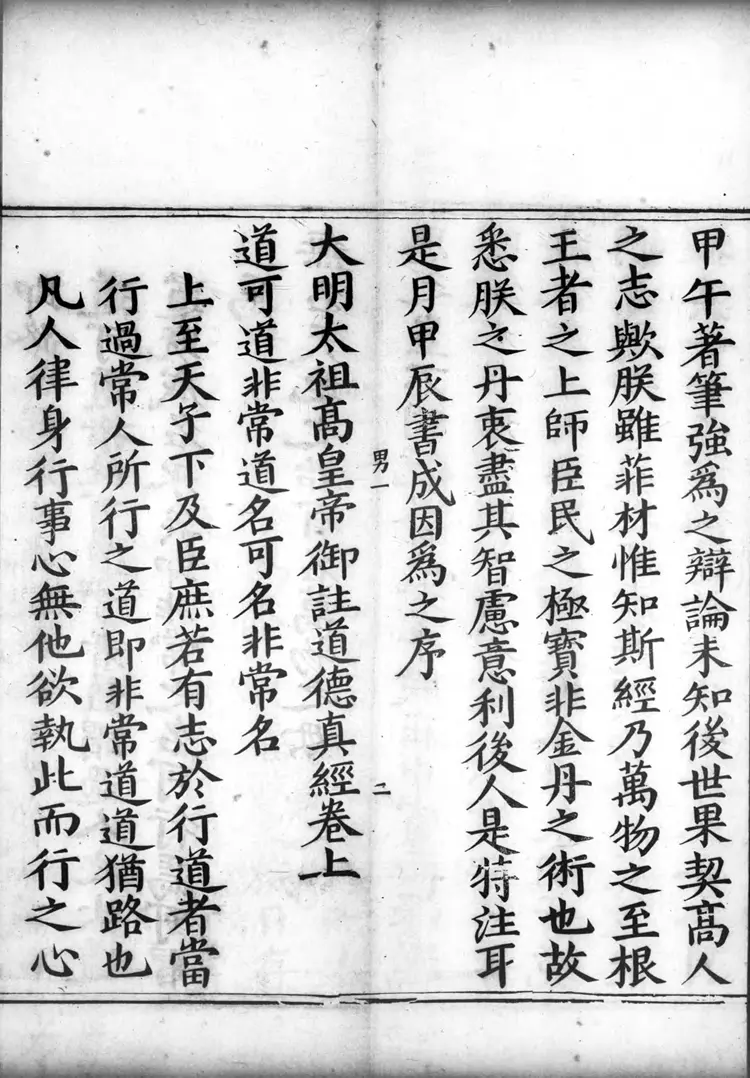 甲午著筆強爲之辯論未知後世果契髙人
之志歟朕雖菲材惟知斯經乃萬物之至根
王者之上師臣民之極寳非金丹之術也故
悉朕之丹衷盡其智慮意利後人是特注耳
是月甲辰書成因爲之序
男一
二
大明太祖髙皇帝御註道德真經卷上
道可道非常道名可名非常名
上至天子下及臣庶若有志於行道者當
行過常人所行之道即非常道道猶路也
凡人律身行事心無他欲執此而行之心